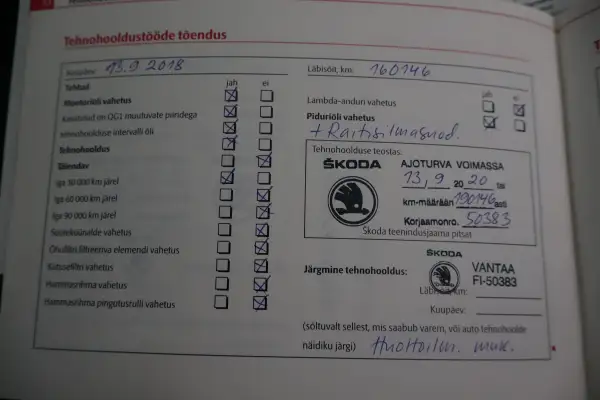 Tehnohooldustööde tõendus
Kuupäev: 13.9 2018
Läbisõit, km: 160146
jah ei
Tehtud
Mootoriõli vahetus
Kasutatud on QG1 muutuvate piiridega
tehnohoolduse intervalli õli
Tehnohooldus
Täiendav
iga 30 000 km järel
iga 60 000 km järel
iga 90 000 km järel
Süüteküünalde vahetus
Õhufiltri filtreeriva elemendi vahetus
Kütusefiltri vahetus
Hammasrihma vahetus
Hammasrihma pingutusrulli vahetus
jah ei
Lambda-anduri vahetus
Piduriõli vahetus
+ Raitisilmasuod.
Tehnohoolduse teostas:
ŠKODA
AJOTURVA VOIMASSA
13, 9 20 20 tai
km-määrään 190146 asti
Korjaamonro. 50383
Škoda teenindusjaama pitsat
ŠKODA
Järgmine tehnohooldus:
VANTAA
FI-50383
Läbisõit, km:
Kuupäev:
(sõltuvalt sellest, mis saabub varem, või auto tehnohoolde
näidiku järgi) Huoltoilm. muk.